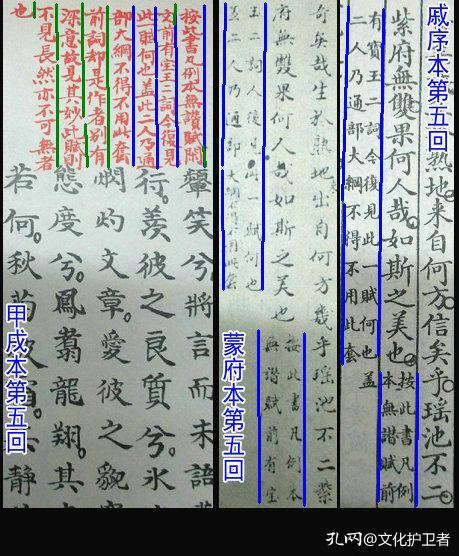 戚序本第五回
熱地来自何方信矣乎瑶池不二
紫府無雙果何人哉如斯之美也
按此書凡例
本無讃賦前
有寳玉二詞今復見此一賦何也盖
二人乃通部大綱不得不用此套
蒙府本第五回
奇矣哉生於熟地出自何方幾乎瑶池不二紫
府無雙果何人哉如斯之美也
按此書凡例本
無讃賦前有宝
玉二詞人後見此一賦何也
盖二人乃通部大綱不得不用此套
甲戌本第五回
按此書凡例本無讃賦閑
文前有宝玉二詞今復見
此賦何也盖此二人乃通
部大綱不得不用此套
前詞却是作者别有
深意故見其妙此賦則
不見長然亦不可無者
也
颦笑兮。將言而未語
行。羡彼之良質兮。氷
爛灼文章。愛彼之貌容
態度兮。鳳翥龍翔。其
若何。秋菊被霜。静
孔网@文化护卫者